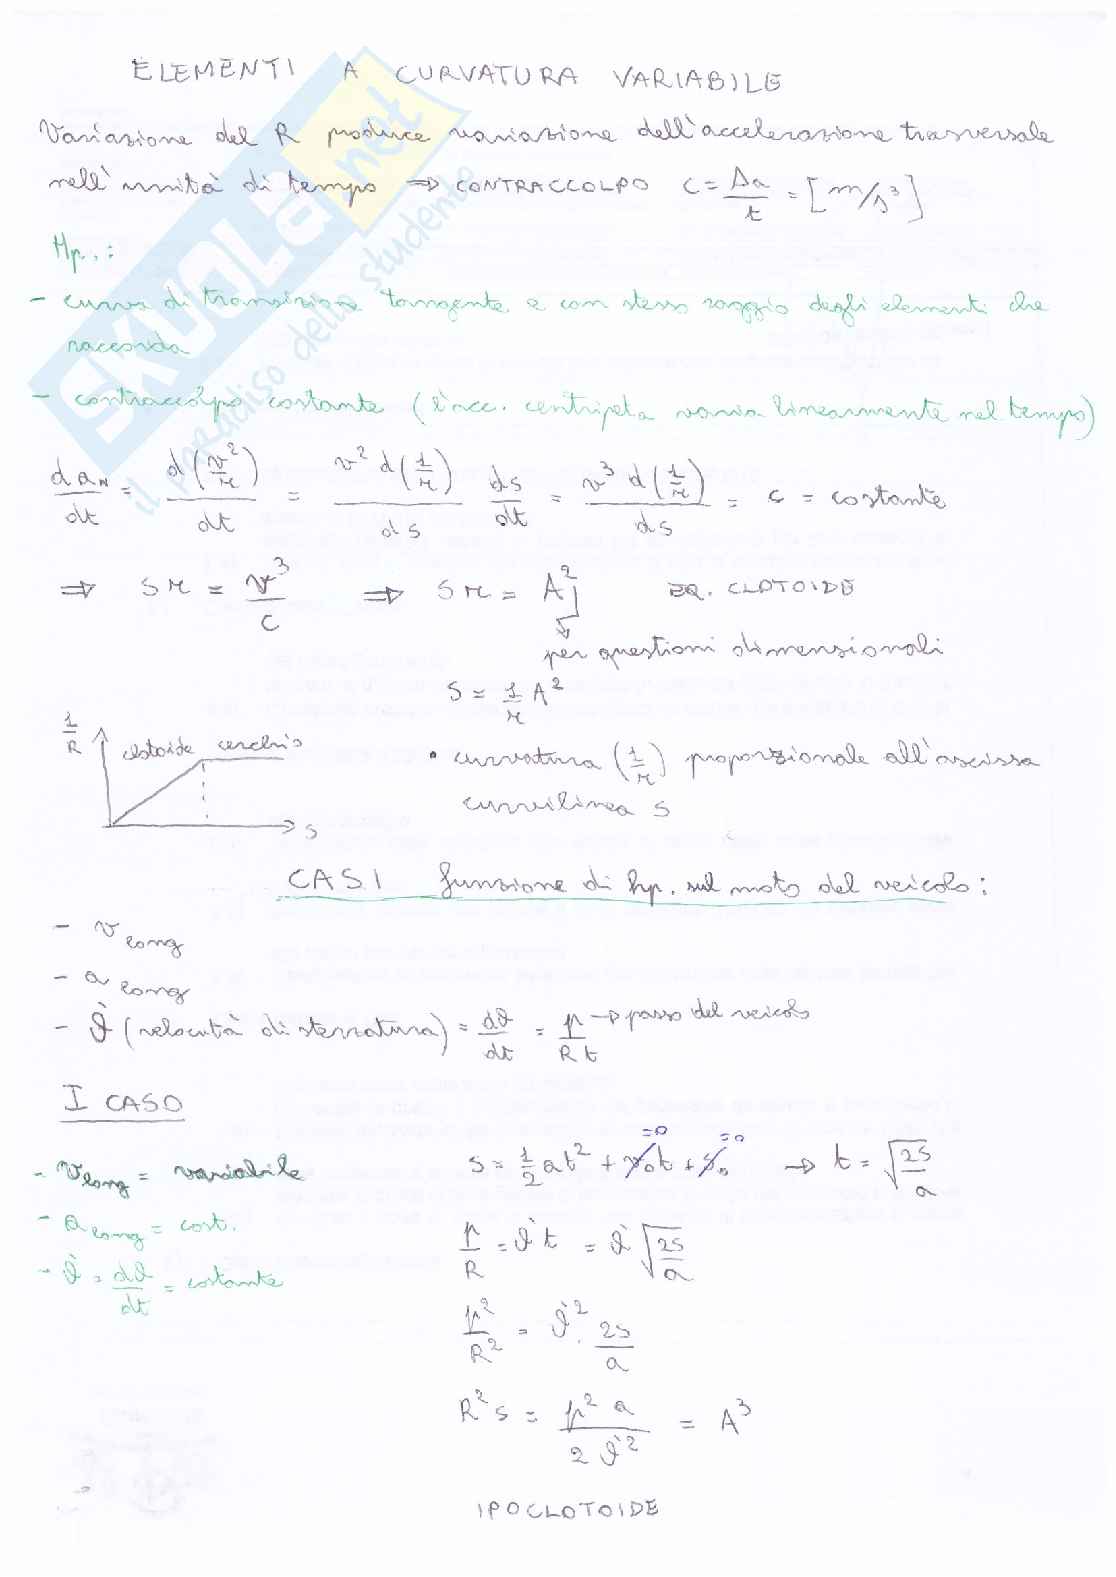 ELEMENTI A CURVATURA VARIABILE
Variazione del R produce variazione dell'accelerazione trasversale
nell'unità di tempo ⇒ CONTRACCOLPO c = Δa/t = [m/s³]
Hp.:
- curva di transizione tangente e con stesso raggio degli elementi che
raccorda
- contraccolpo costante (l'acc. centripeta varia linearmente nel tempo)
d a_N/dt = d(v²/r)/dt = v² d(1/r)/ds ds/dt = v³ d(1/r)/ds = c = costante
⇒ s r = v³/c ⇒ s r = A² EQ. CLOTOIDE
per questioni dimensionali
s = 1/r A²
1/R clotoide cerchio s
• curvatura (1/r) proporzionale all'ascissa
curvilinea s
CASI funzione di hp. sul moto del veicolo:
- v long
- a long
- ϑ̇ (velocità di sterzatura) = dϑ/dt = p/(R t) → passo del veicolo
I CASO
- v long = variabile
- a long = cost.
- ϑ̇ = dϑ/dt = costante
s = 1/2 at² + v₀t + s₀ → t = √(2s/a)
=0 =0
p/R = ϑ̇ t = ϑ̇ √(2s/a)
p²/R² = ϑ̇² · 2s/a
R² s = p² a/(2 ϑ̇²) = A³
IPOCLOTOIDE
SKUOLA.net
il paradiso dello studente